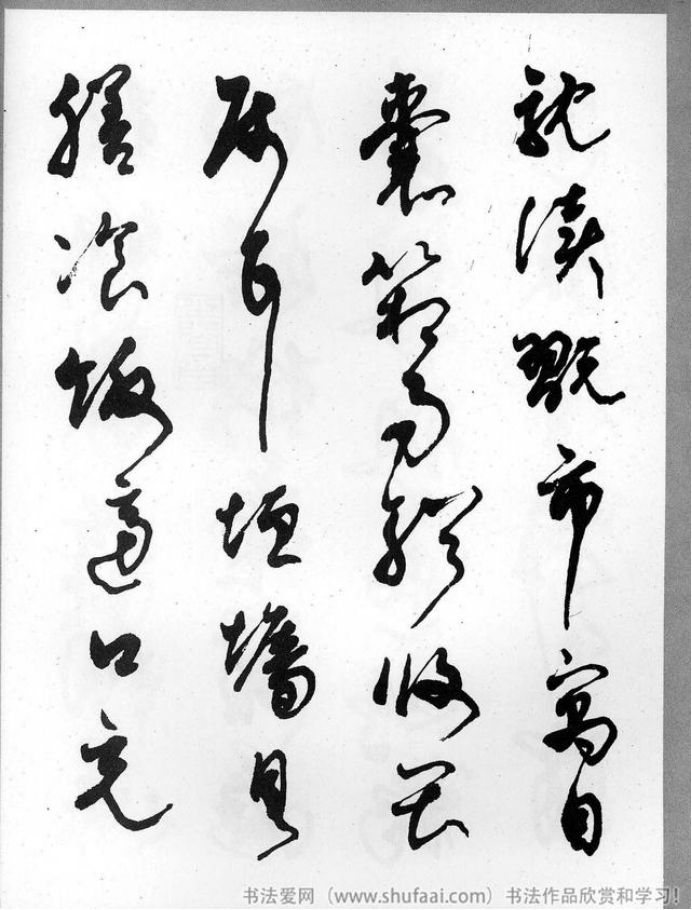 耽读玩市寓目
囊箱易輶攸畏
属耳垣墙具
膳飡饭适口充
书法爱网（www.shufaai.com）书法作品欣赏和学习！